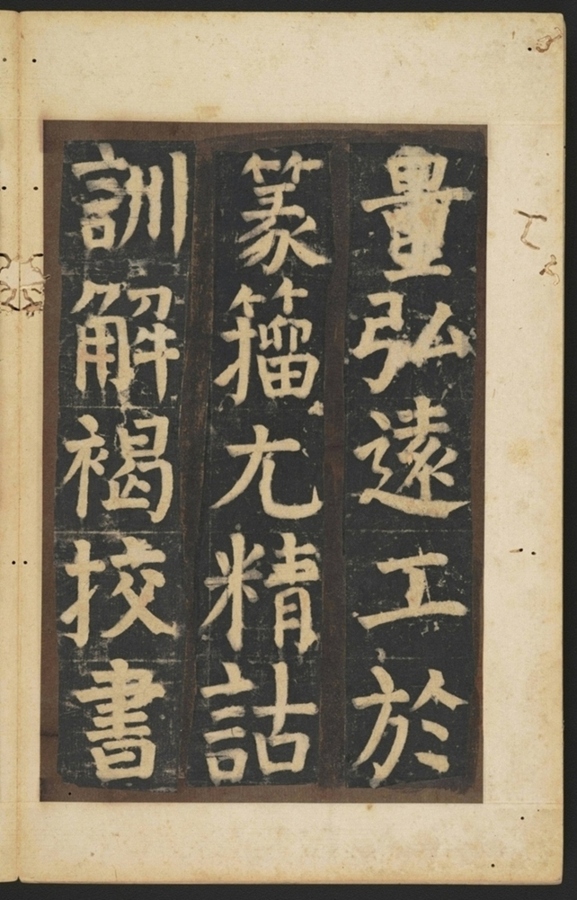 量弘遠工於
篆籀尤精詁
訓解褐挍書